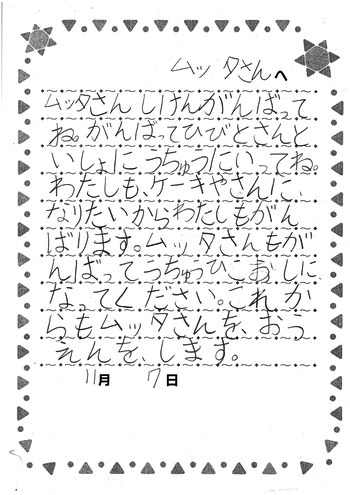 ムッタさんへ
ムッタさんしけんがんばって
ね。がんばってひびとさんと
いしょにうちゅうにいってね。
わたしも、ケーキやさんに、
なりたいからわたしもがん
ばります。ムッタさんもが
んばってうちゅうひこおしに
なってください。これか
らもムッタさんを、おう
えんを、します。
11月 7日